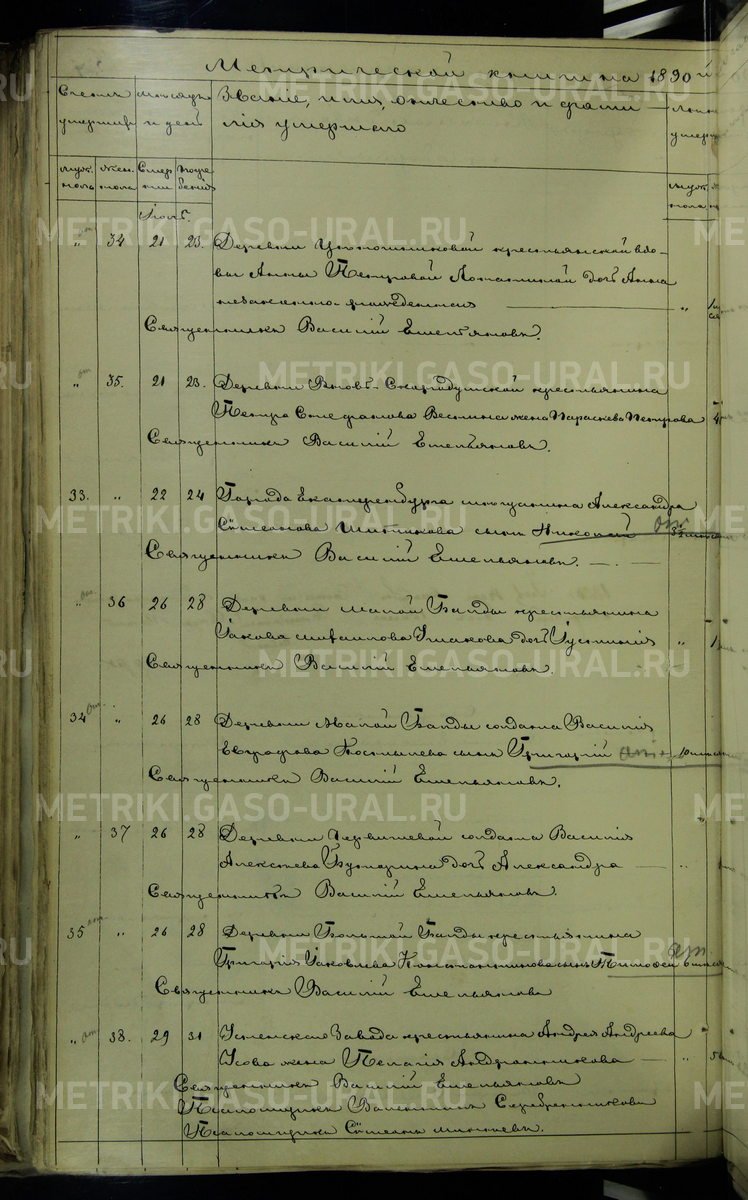 Метрической книги на 1890 й
Счетъ умершихъ
Мѣсяцъ и день
Званіе, имя, отчество и фами-
лія умершаго
муж. пола
жен. пола
Смер ти
погре бенія
муж. пола
Іюль.
„ 34 21 23. Деревни крестьянской вдо-
вы Анны Петровой дочь Анна
незаконно-рожденная
Священникъ Василій Емельяновъ.
„ 35. 21 23. Деревни крестьянина
Петра Стефанова жена Параскева Петрова
Священникъ Василій Емельяновъ.
33. „ 22 24 Города Екатеринбурга мѣщанина Александра
Стефанова сынъ Николай
Священникъ Василій Емельяновъ.
„ 36 26 28 Деревни Малой Балды крестьянина
Іакова Михаилова Ушакова дочь Іустинія
Священникъ Василій Емельяновъ.
34 „ 26 28 Деревни Малой Балды солдата Василія
Евграфова сынъ Григорій 10 мѣсяц
Священникъ Василій Емельяновъ.
„ 37 26 28 Деревни солдата Василія
Алексѣева дочь Александра
Священникъ Василій Емельяновъ.
35 „ 26 28 Деревни Большой Балды крестьянина
Григорія Іаковлева Константинова сынъ Тимофей 6 мѣсяц
Священникъ Василій Емельяновъ
„ 38. 29 31 Успенскаго Завода крестьянина Андрея Андреева
Усова жена Пелагія Андроникова
Священникъ Василій Емельяновъ
Псаломщикъ Валентинъ Серебренниковъ
Псаломщикъ Стефанъ
METRIKI.GASO-URAL.RU